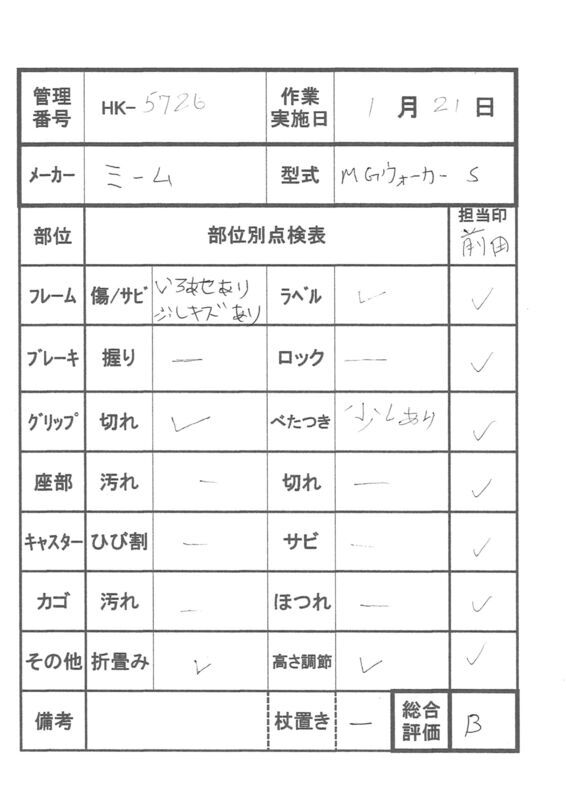 管理番号 HK-5726 作業実施日 1月21日
メーカー ミーム 型式 MGウォーカー S
部位 部位別点検表 担当印 前田
フレーム 傷/サビ いろあせあり 少しキズあり ラベル ✓ ✓
ブレーキ 握り — ロック — ✓
グリップ 切れ ✓ べたつき 少しあり ✓
座部 汚れ — 切れ — ✓
キャスター ひび割 — サビ — ✓
カゴ 汚れ — ほつれ — ✓
その他 折畳み ✓ 高さ調節 ✓ ✓
備考 杖置き — 総合評価 B